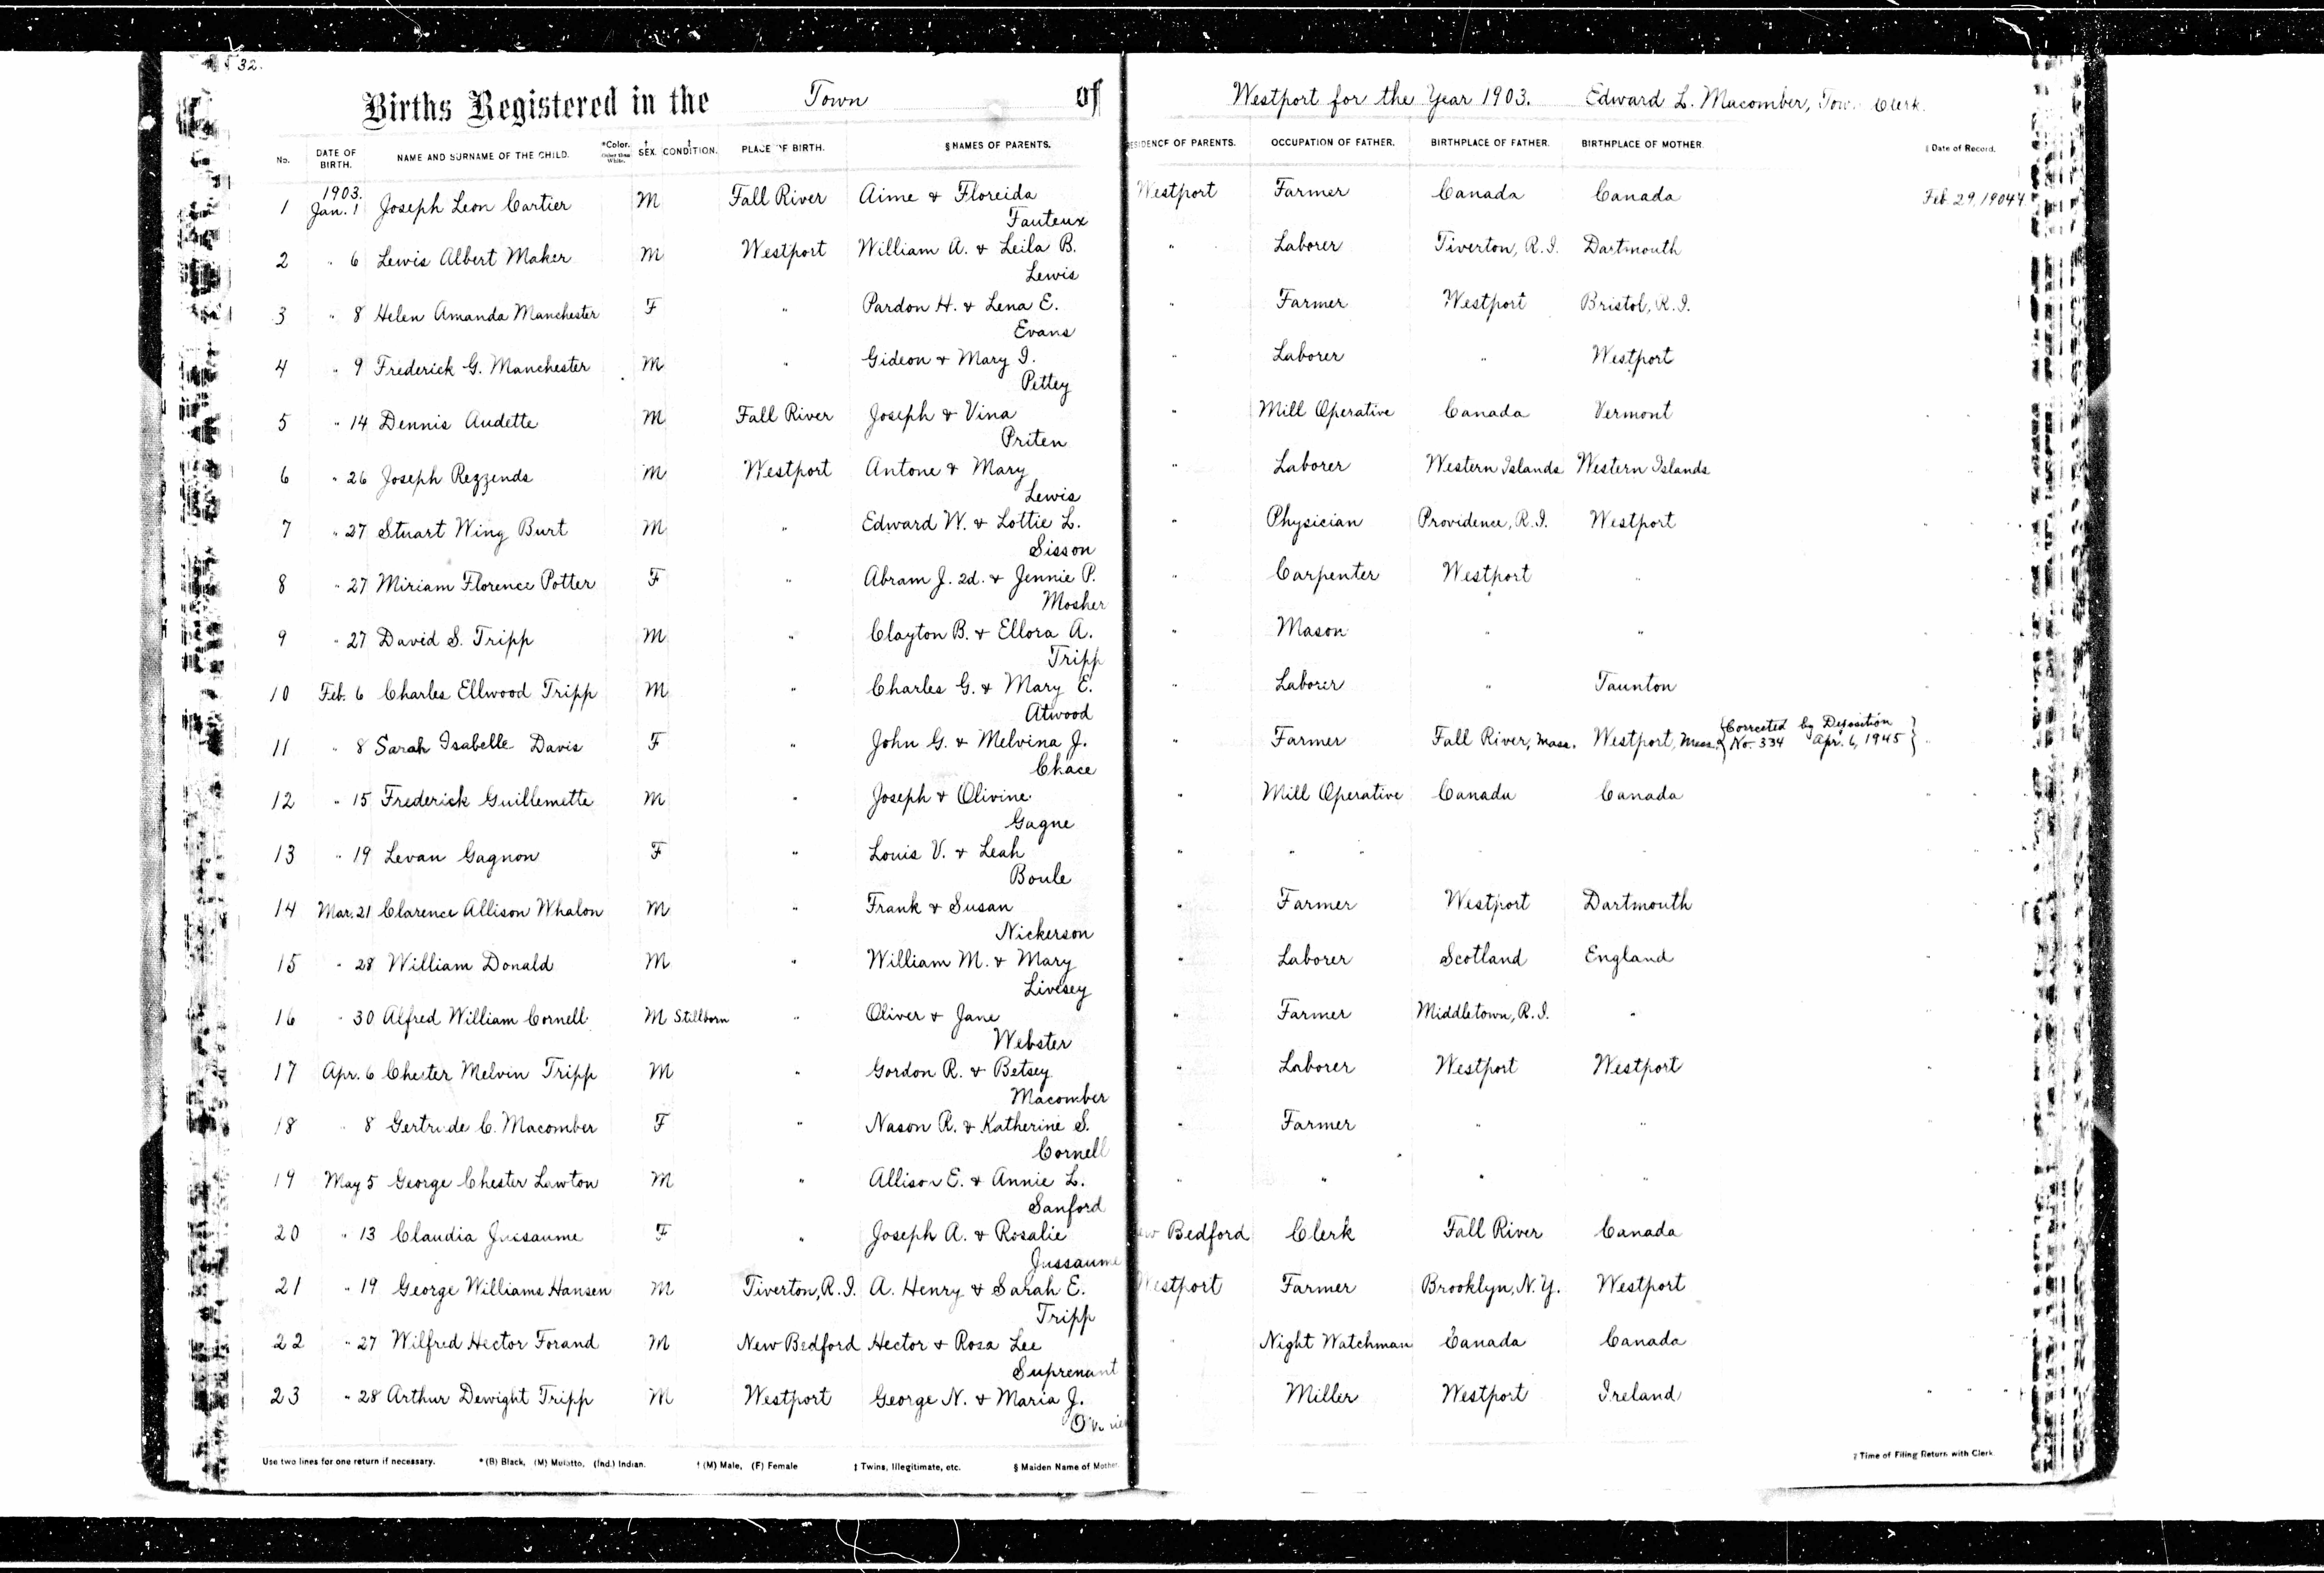 32.
Births Registered in the Town of Westport for the Year 1903. Edward L. Macomber, Town Clerk.
No. DATE OF BIRTH. NAME AND SURNAME OF THE CHILD. *Color. Other than White. †SEX. ‡CONDITION. PLACE OF BIRTH. §NAMES OF PARENTS. RESIDENCE OF PARENTS. OCCUPATION OF FATHER. BIRTHPLACE OF FATHER. BIRTHPLACE OF MOTHER. Date of Record.
1903.
1 Jan. 1 Joseph Leon Cartier M Fall River Aime & Floreida Westport Farmer Canada Canada Feb. 29, 1904
Fauteux
2 " 6 Lewis Albert Maker M Westport William A. & Leila B. " Laborer Tiverton, R.I. Dartmouth
Lewis
3 " 8 Helen Amanda Manchester F " Pardon H. & Lena E. " Farmer Westport Bristol, R.I.
Evans
4 " 9 Frederick G. Manchester M " Gideon & Mary I. " Laborer " Westport
Pettey
5 " 14 Dennis Audette M Fall River Joseph & Vina " Mill Operative Canada Vermont
Priten
6 " 26 Joseph Rezzends M Westport Antone & Mary " Laborer Western Islands Western Islands
Lewis
7 " 27 Stuart Wing Burt M " Edward W. & Lottie L. " Physician Providence, R.I. Westport
Sisson
8 " 27 Miriam Florence Potter F " Abram J. 2d. & Jennie P. " Carpenter Westport "
Mosher
9 " 27 David S. Tripp M " Clayton B. & Ellora A. " Mason " "
Tripp
10 Feb. 6 Charles Ellwood Tripp M " Charles G. & Mary E. " Laborer " Taunton
Atwood
11 " 8 Sarah Isabelle Davis F " John G. & Melvina J. " Farmer Fall River, Mass. Westport, Mass. {Corrected by Deposition No. 334 Apr. 6, 1945}
Chace
12 " 15 Frederick Guillemette M " Joseph & Olivine " Mill Operative Canada Canada
Gagne
13 " 19 Levan Gagnon F " Louis V. & Leah " " " " "
Boule
14 Mar. 21 Clarence Allison Whalon M " Frank & Susan " Farmer Westport Dartmouth
Nickerson
15 " 28 William Donald M " William M. & Mary " Laborer Scotland England
Livesey
16 " 30 Alfred William Cornell M Stillborn " Oliver & Jane " Farmer Middletown, R.I. "
Webster
17 Apr. 6 Chester Melvin Tripp M " Gordon R. & Betsey " Laborer Westport Westport
Macomber
18 " 8 Gertrude C. Macomber F " Nason R. & Katherine S. " Farmer " "
Cornell
19 May 5 George Chester Lawton M " Allison E. & Annie L. " " " "
Sanford
20 " 13 Claudia Jussaume F " Joseph A. & Rosalie New Bedford Clerk Fall River Canada
Jussaume
21 " 19 George Williams Hansen M Tiverton, R.I. A. Henry & Sarah E. Westport Farmer Brooklyn, N.Y. Westport
Tripp
22 " 27 Wilfred Hector Forand M New Bedford Hector & Rosa Lee " Night Watchman Canada Canada
Suprenant
23 " 28 Arthur Dewight Tripp M Westport George N. & Maria J. Miller Westport Ireland
Use two lines for one return if necessary. *(B) Black, (M) Mulatto, (Ind.) Indian. †(M) Male, (F) Female ‡Twins, Illegitimate, etc. §Maiden Name of Mother. Time of Filing Return with Clerk.